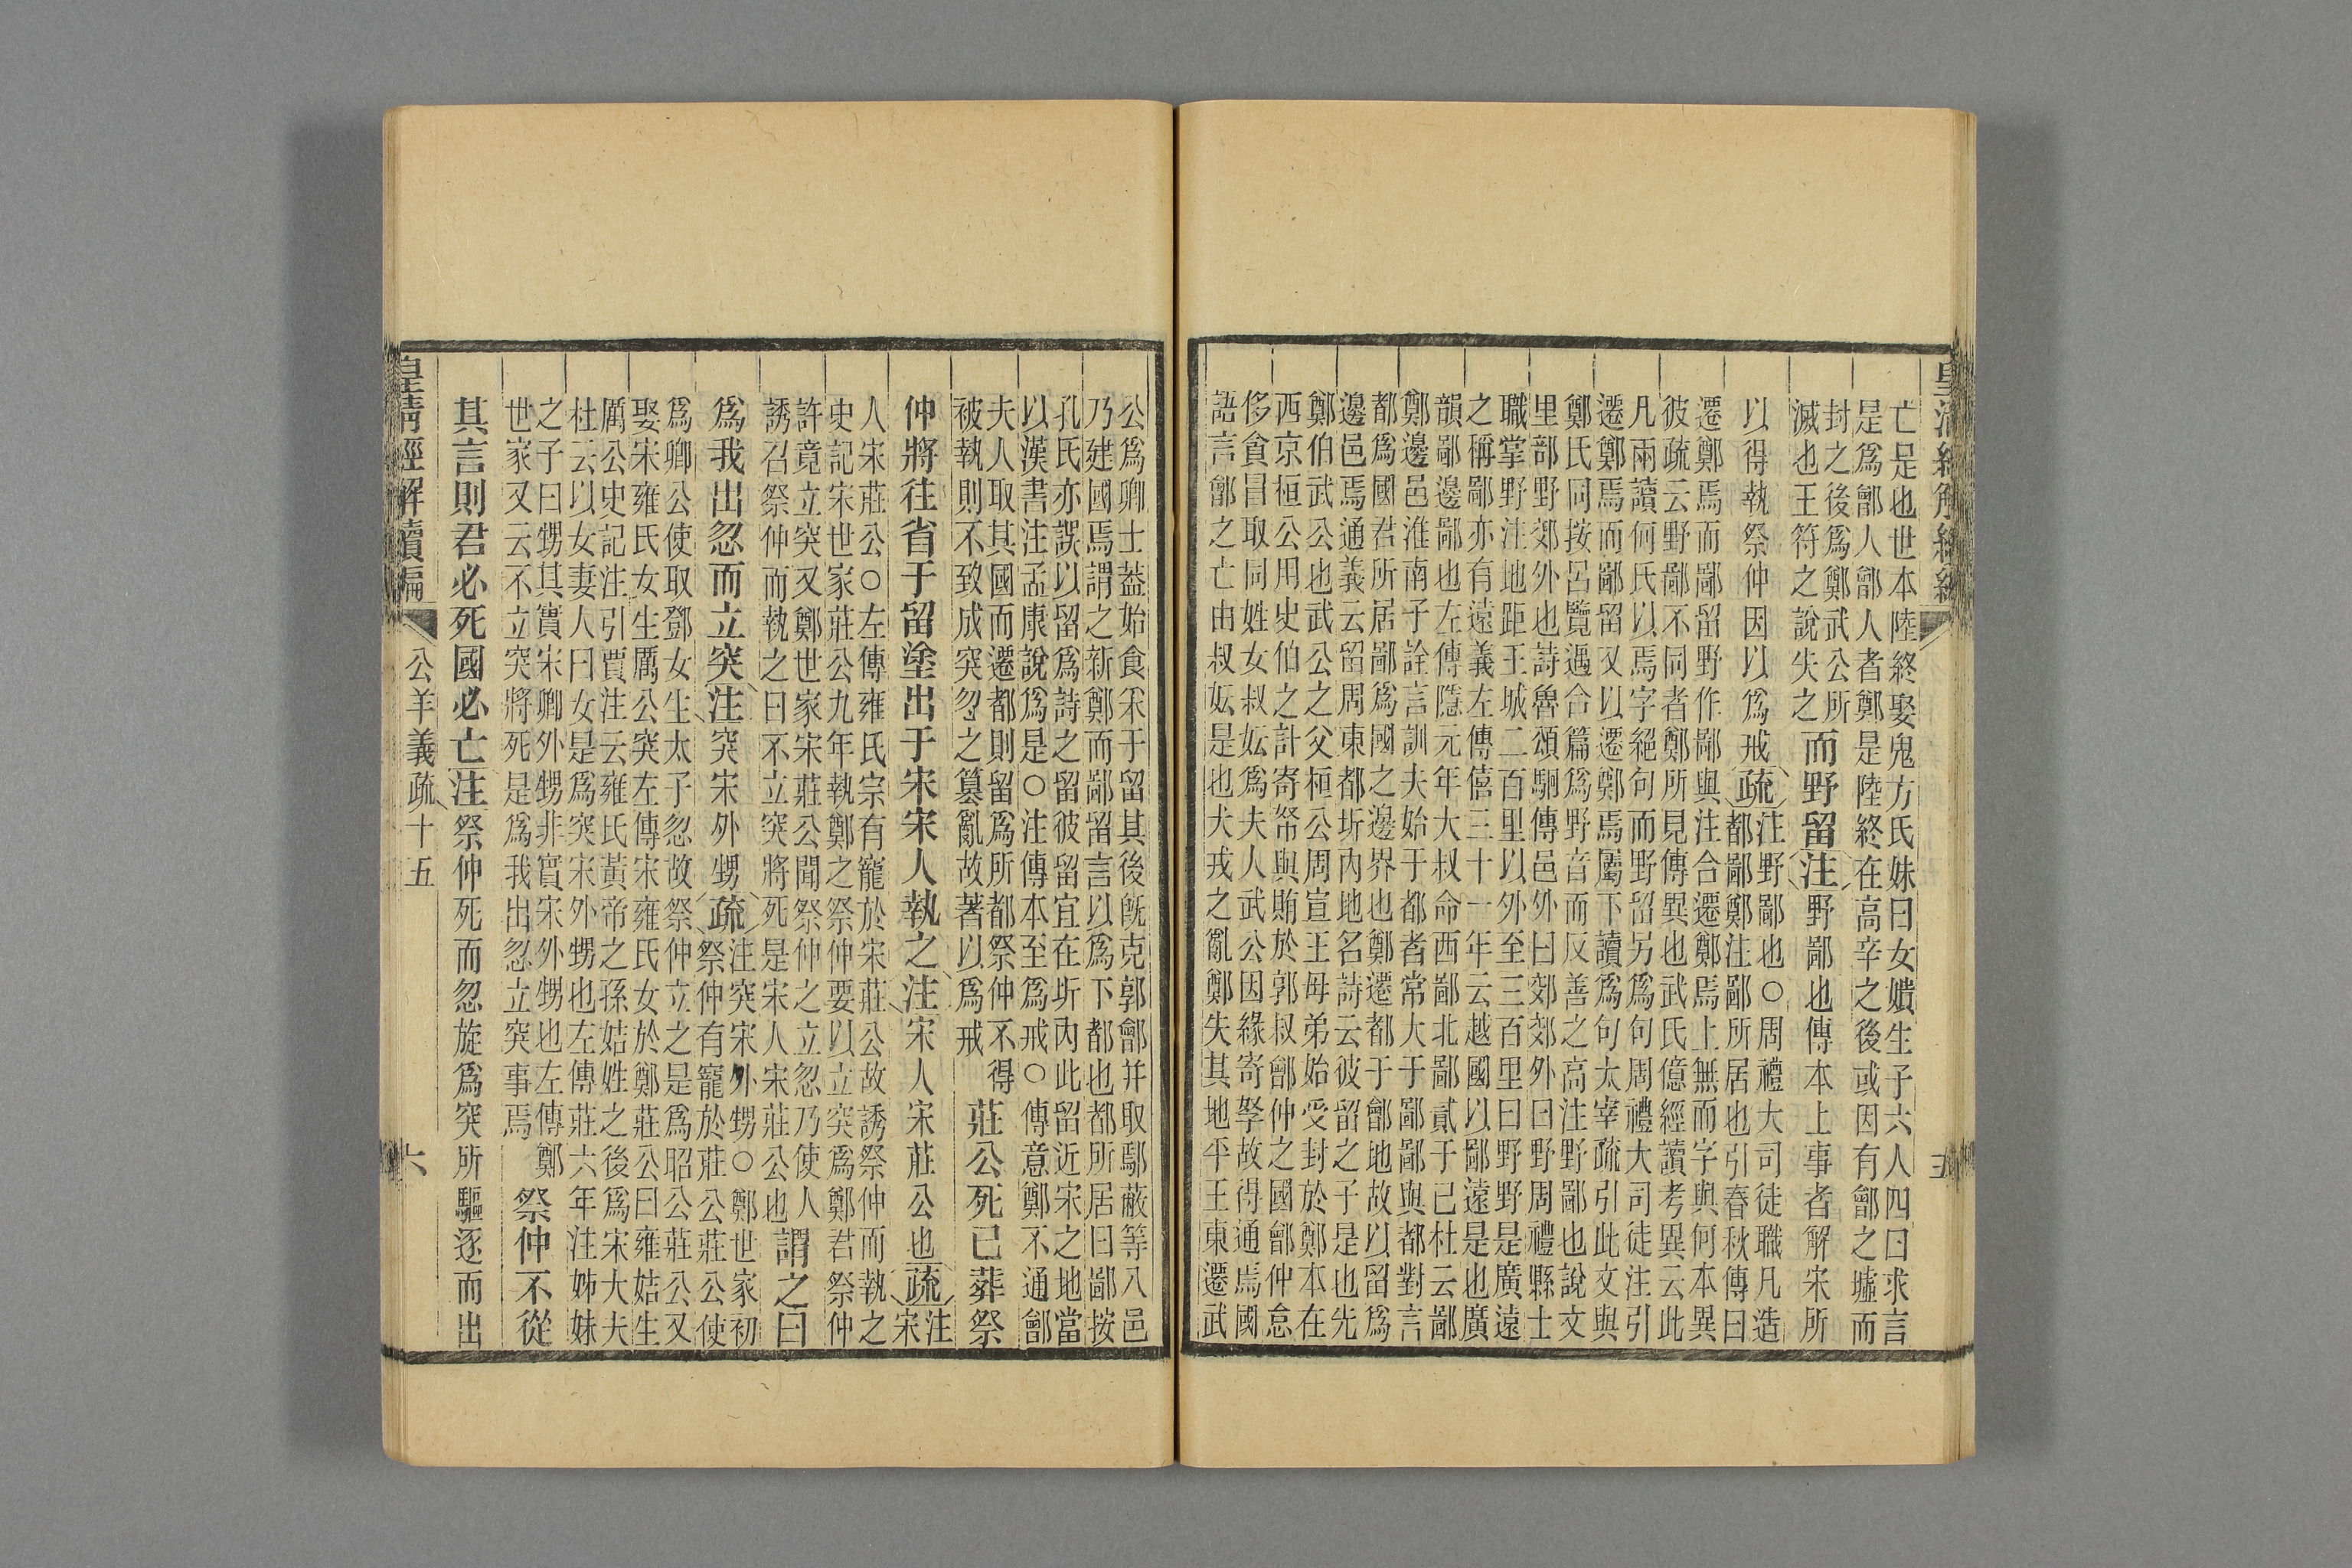 皇清經解續編
五
亡是也世本陸終娶鬼方氏妹曰女嬇生子六人四曰求言
是爲鄶人鄶人者鄭是陸終在高辛之後或因有鄶之墟而
封之後爲鄭武公所
滅也王符之說失之
而野留注野鄙也傳本上事者解宋所
以得執祭仲因以爲戒疏
注野鄙也○周禮大司徒職凡造
都鄙鄭注鄙所居也引春秋傳曰
遷鄭焉而鄙留野作鄙與注合遷鄭焉上無而字與何本異
彼疏云野鄙不同者鄭所見傳異也武氏億經讀考異云此
凡兩讀何氏以焉字絕句而野留另爲句周禮大司徒注引
遷鄭焉而鄙留又以遷鄭焉屬下讀爲句太宰疏引此文與
鄭氏同按呂覽遇合篇爲野音而反善之高注野鄙也說文
里部野郊外也詩魯頌駉傳邑外曰郊郊外曰野周禮縣士
職掌野注地距王城二百里以外至三百里曰野野是廣遠
之稱鄙亦有遠義左傳僖三十一年云越國以鄙遠是也廣
韻鄙邊鄙也左傳隱元年大叔命西鄙北鄙貳于己杜云鄙
鄭邊邑淮南子詮言訓夫始于都者常大于鄙鄙與都對言
都爲國君所居鄙爲國之邊界也鄭遷都于鄶地故以留爲
邊邑焉通義云留周東都圻內地名詩云彼留之子是也先
鄭伯武公也武公之父桓公周宣王母弟始受封於鄭本在
西京桓公用史伯之計寄帑與賄於郭叔鄶仲之國鄶仲怠
侈貪冒取同姓女叔妘爲夫人武公因緣寄孥故得通焉國
語言鄶之亡由叔妘是也犬戎之亂鄭失其地平王東遷武
公爲卿士葢始食采于留其後旣克郭鄶并取鄢蔽等八邑
乃建國焉謂之新鄭而鄙留言以爲下都也都所居曰鄙按
孔氏亦誤以留爲詩之留彼留宜在圻內此留近宋之地當
以漢書注孟康說爲是○注傳本至爲戒○傳意鄭不通鄶
夫人取其國而遷都則留爲所都祭仲不得
被執則不致成突忽之簒亂故著以爲戒
莊公死已葬祭
仲將往省于留塗出于宋宋人執之注宋人宋莊公也疏
注宋
人宋莊公○左傳雍氏宗有寵於宋莊公故誘祭仲而執之
史記宋世家莊公九年執鄭之祭仲要以立突爲鄭君祭仲
許竟立突又鄭世家宋莊公聞祭仲之立忽乃使人
誘召祭仲而執之曰不立突將死是宋人宋莊公也
謂之曰
爲我出忽而立突注突宋外甥疏
注突宋外甥○鄭世家初
祭仲有寵於莊公莊公使
爲卿公使取鄧女生太子忽故祭仲立之是爲昭公莊公又
娶宋雍氏女生厲公突左傳宋雍氏女於鄭莊公曰雍姞生
厲公史記注引賈注云雍氏黃帝之孫姞姓之後爲宋大夫
杜云以女妻人曰女是爲突宋外甥也左傳莊六年注姊妹
之子曰甥其實宋卿外甥非實宋外甥也左傳鄭
世家又云不立突將死是爲我出忽立突事焉
祭仲不從
其言則君必死國必亡注祭仲死而忽旋爲突所驅逐而出
皇清經解續編
公羊義疏十五
六